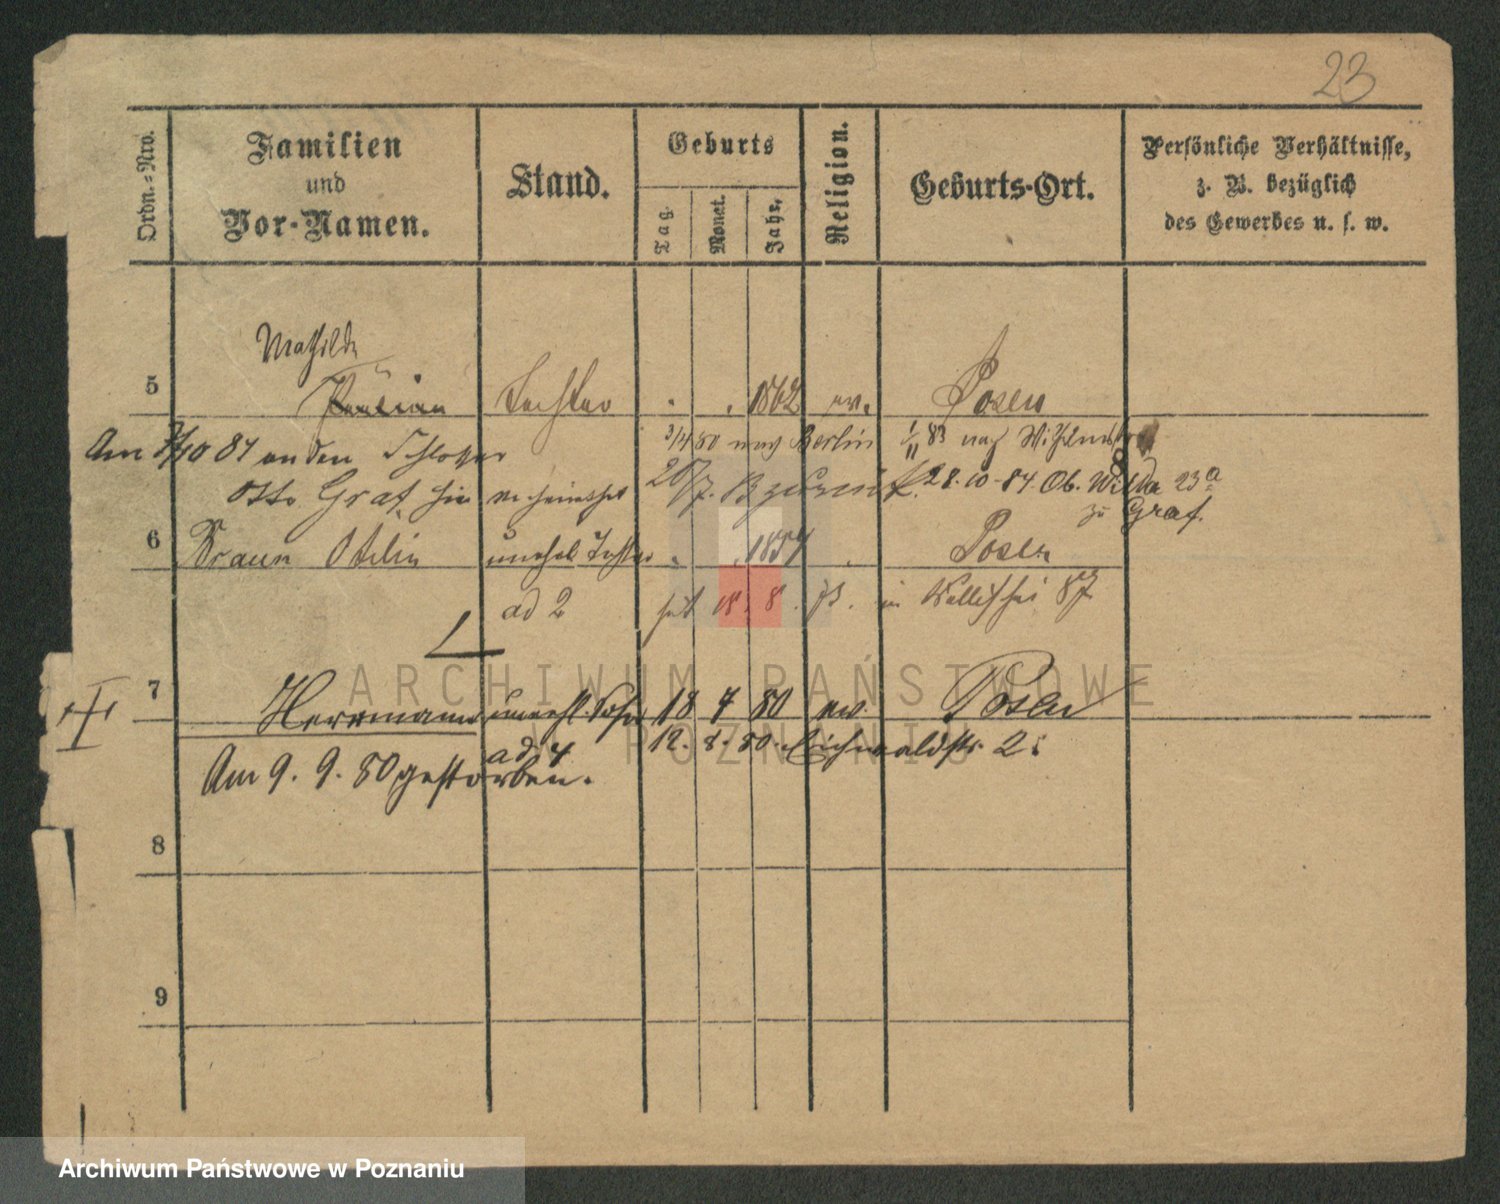 23
Ordn.-Nro.
Familien
und
Vor-Namen.
Stand.
Geburts
Tag.
Monat.
Jahr.
Religion.
Geburts-Ort.
Persönliche Verhältnisse,
z. B. bezüglich
des Gewerbes u. s. w.
Mathilde
5 Tochter 1862 ev. Posen
Am 10 81 an den Schlosser 3/4 80 nach Berlin 1/11 83 nach
Otto Graf hier verheirathet 28.10.84. Ob. Wilda 23a
zu Graf.
6 Braun Otilie unehel. Tochter 1857 Posen
ad 2 seit 18. 8. in 87
7 Herrmann unehl. Sohn 18 7 80 ev. Posen
ad 4 12. 8. 80. Eichwaldstr. 2
Am 9. 9. 80 gestorben.
8
9
ARCHIWUM PAŃSTWOWE
POZNANIU
Archiwum Państwowe w Poznaniu